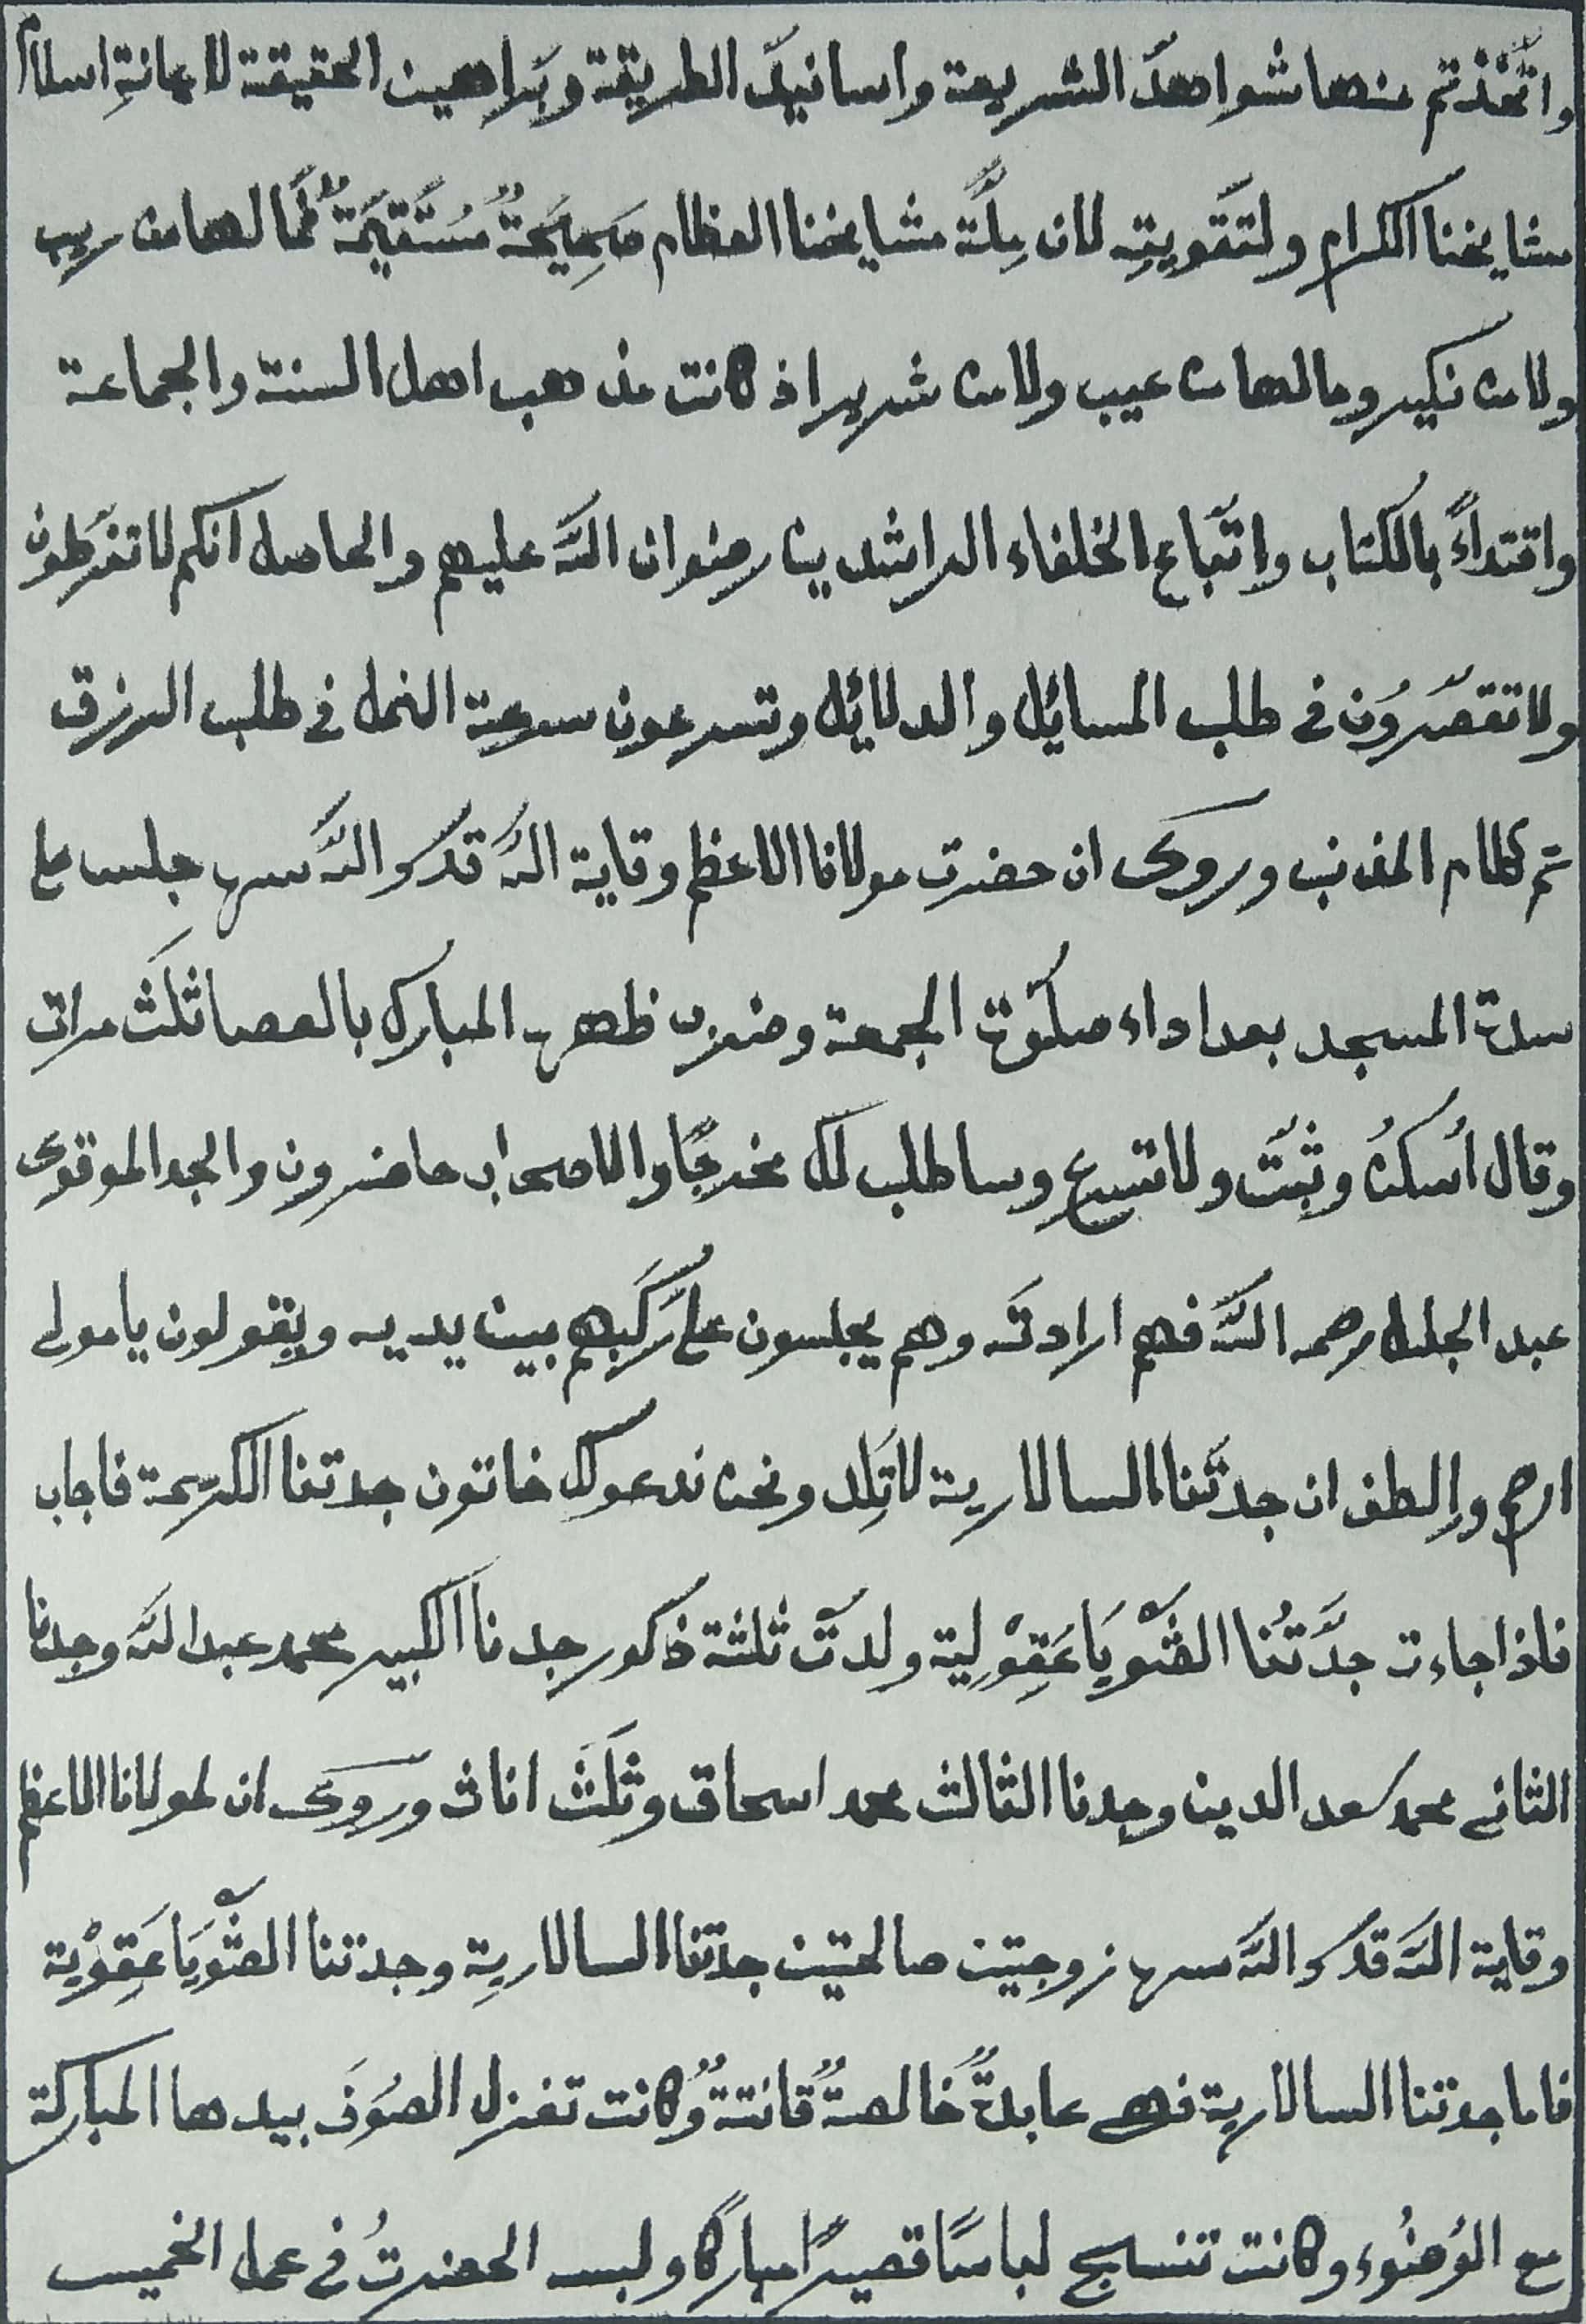 واتَّخَذْتم منها شواهدَ الشريعة واسانيدَ الطريقة وبَراهين الحقيقة لاعانةِ اسلام
مشايخنا الكرام ولتَقويتِه لان مِلَّة مشايخنا العظام صَحِيحَةٌ مُسْتَقِيمَةٌ فما لها من ريب
ولا من نكير وما لها من عيب ولا من شرير اذ كانت مذهب اهل السنة والجماعة
واقتداءً بالكتاب واتّباع الخلفاء الراشدين رضوان اللّه عليهم والحاصل انكم لا تفرّطون
ولا تقصّرُون فى طلب المسائل والدلائل وتسرعون سرعة النمل فى طلب الرزق
تم كلام المذنب وروى ان حضرت مولانا الاعظم وقاية اللّه قدس اللّه سره جلس على
سدة المسجد بعد اداء صلوٰة الجمعة وضرب ظهره المبارك بالعصا ثلٰث مرات
وقال اُسكنْ وثبّت ولا تسرع وساطلب لك مخرجًا والاصحاب حاضرون والجد الموقوى
عبد الجليل رحمه اللّه فهم ارادتَه وهم يجلسون على رُكَبهم بين يديه ويقولون يا مولى
ارحم والطف ان جدّتَنا السالارية لا تَلِد ونحن ندعوك خاتون جدتنا الكريمة فاجاب
فاذا جاءت جدَّتُنا ولدت ثلثة ذكور جدنا الكبير محمد عبد اللّه وجدنا
الثانى محمد سعد الدين وجدنا الثالث محمد اسحاق وثلٰث اناث وروى ان لمولانا الاعظم
وقاية اللّه قدس اللّه سره زوجتين صالحتين جدتنا السالارية وجدتنا
فاما جدتنا السالارية فهى عابدةٌ خالصةٌ قانتةٌ وكانت تغزل الصُوفَ بيدها المباركة
مع الوُضُوء وكانت تنسج لباسًا قصيرًا مباركًا ولبس الحضرتُ فى عمل الخميس